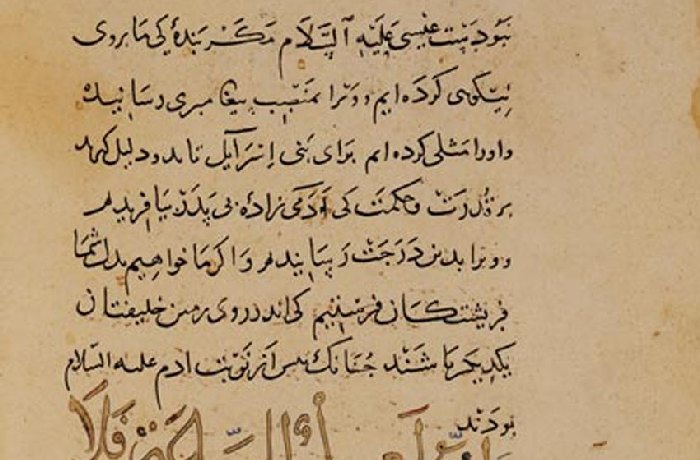 نبودست عیسی علیه السلام مگر بندۀ کی ما بروی
نیکوی کرده ایم و ورا بمنصب پیغامبری رسانیده
و او را مثلی کرده ایم برای بنی اسرآیل تا بدو دلیل کیرند
بر قدرت و حکمت کی آدمی زادۀ بی پدر بیافریدم
و ورا بدین درجت رسانیدم و اکر ما خواهیم بدل شما
فریشتکان فرستیم کی اندر روی زمین خلیفتان
یکدیکر باشند چنانک پس از نوبت ادم علیه السلام
بودند